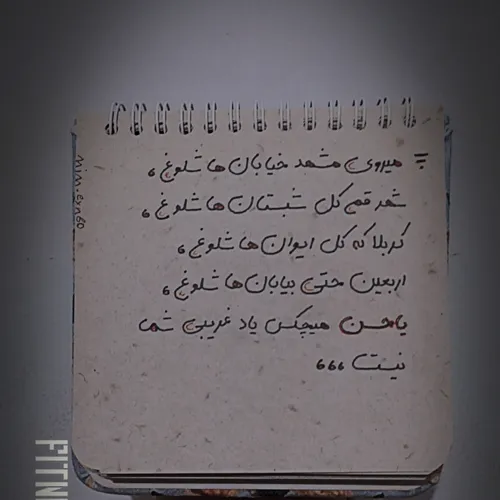 میروی مشهد خیابان ها شلوغ ،
شهر قم کل شبستان ها شلوغ ،
کربلا که کل ایوان ها شلوغ ،
اربعین حتی بیابان ها شلوغ ،
یا حسن هیچکس یاد غریبی شما
نیست ،،،
mim.sxn60
FITN